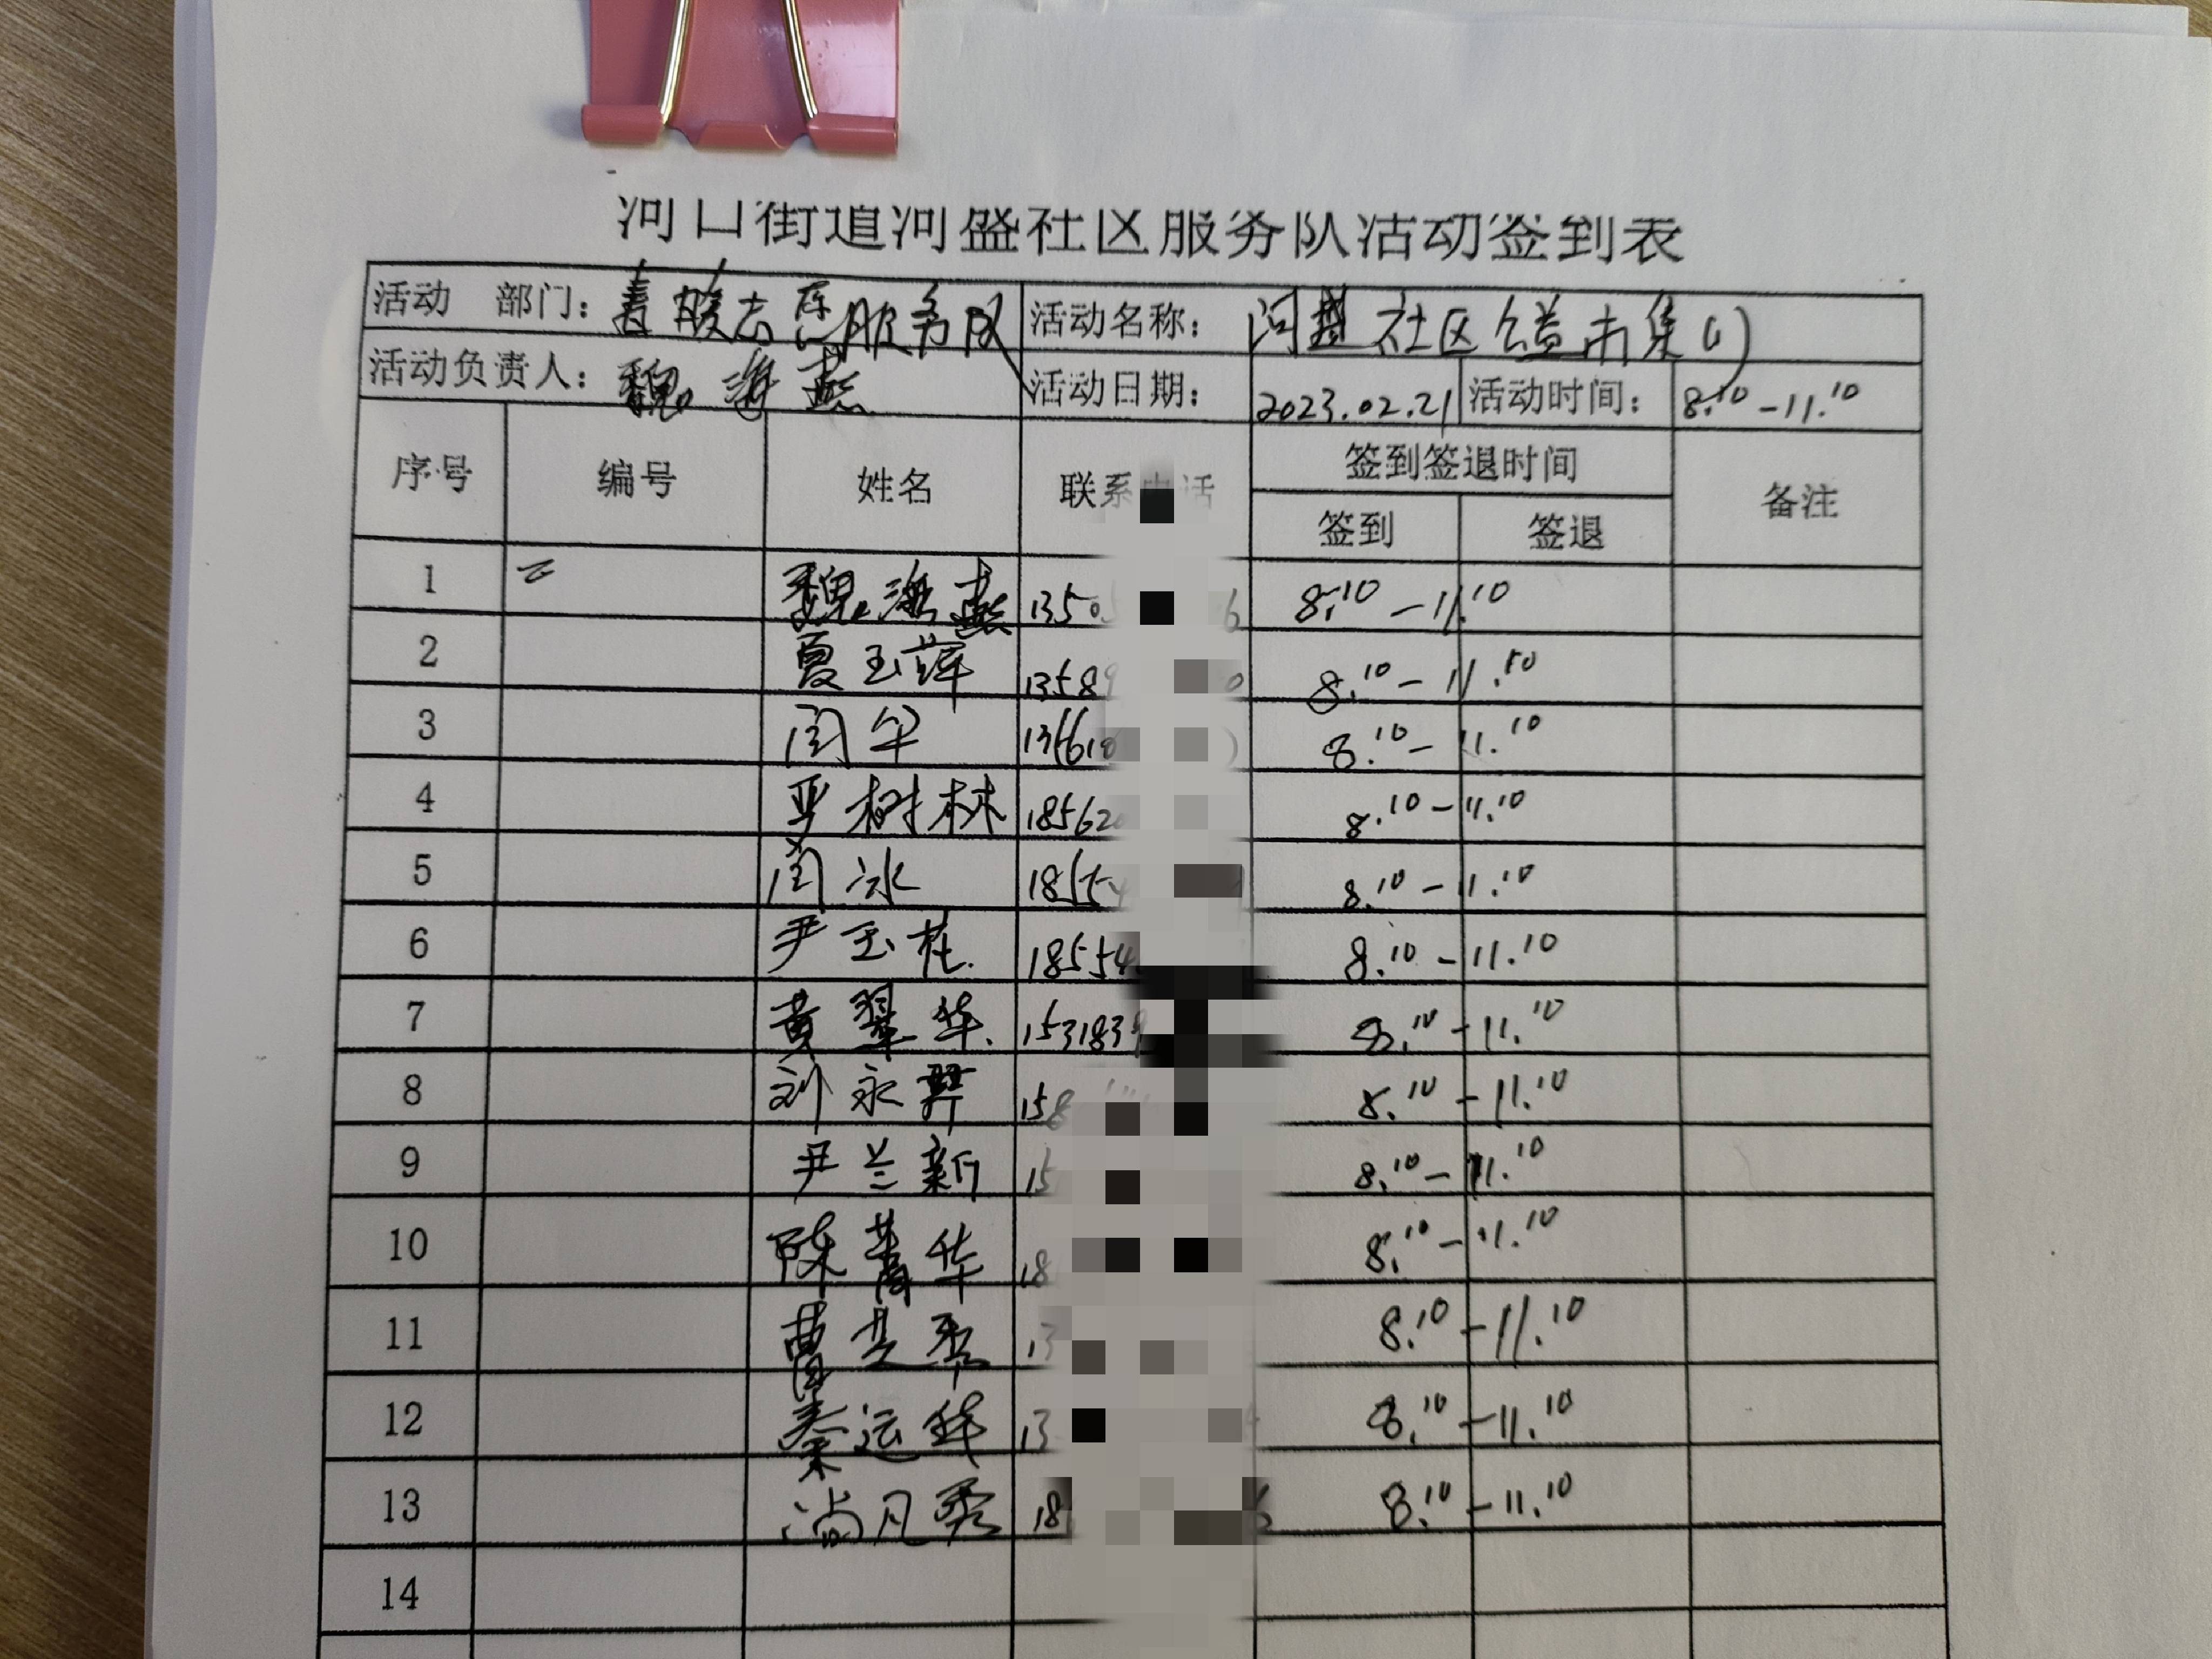 河口街道河盛社区服务队活动签到表
活动 部门： 春暖志愿服务队 活动名称： 河盛社区公益市集(1)
活动负责人： 魏海燕 活动日期： 2023.02.21 活动时间： 8:10-11:10
序号 编号 姓名 联系电话 签到签退时间 备注
签到 签退
1 魏海燕 1350 6 8:10-11:10
2 夏玉萍 13589 0 8.10-11.10
3 闫华 13661 8.10-11.10
4 严树林 18562 8.10-11.10
5 闫冰 1855 8.10-11.10
6 尹玉柱 18554 8.10-11.10
7 黄翠华 1531839 8.10-11.10
8 刘永 158 8.10-11.10
9 尹兰新 15 8.10-11.10
10 陈菁华 18 8.10-11.10
11 曹芝 13 8.10-11.10
12 秦运华 13 8.10-11.10
13 尚月秀 18 8.10-11.10
14